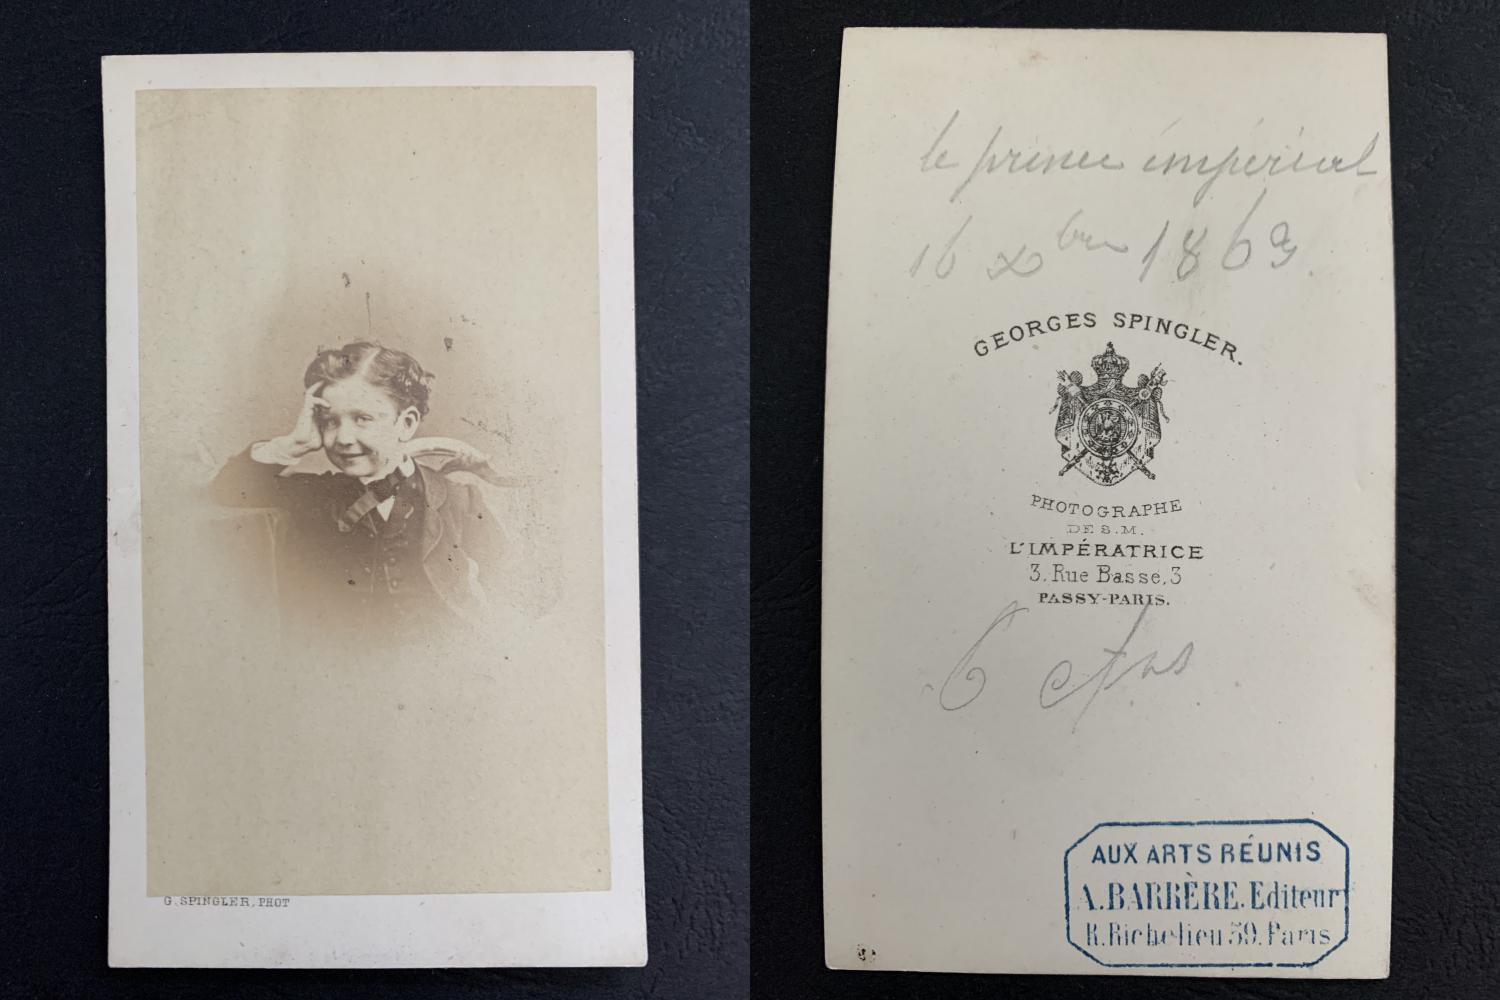 G. SPINGLER, PHOT
le prince impérial
16 Xbre 1863.
GEORGES SPINGLER.
PHOTOGRAPHE
DE S. M.
L'IMPÉRATRICE
3, Rue Basse, 3
PASSY-PARIS.
6
AUX ARTS RÉUNIS
A. BARRÈRE. Editeur
R. Richelieu 59. Paris